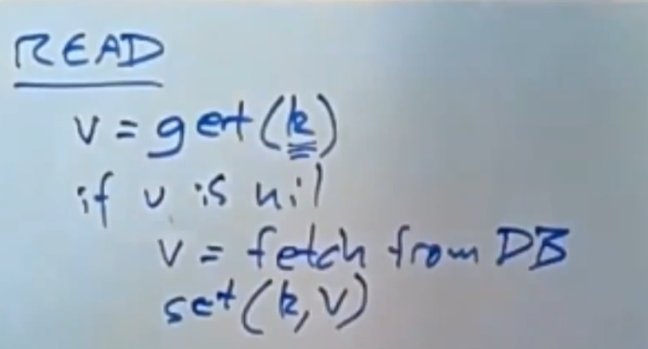 READ
v = get(k)
if v is nil
v = fetch from DB
set(k, v)